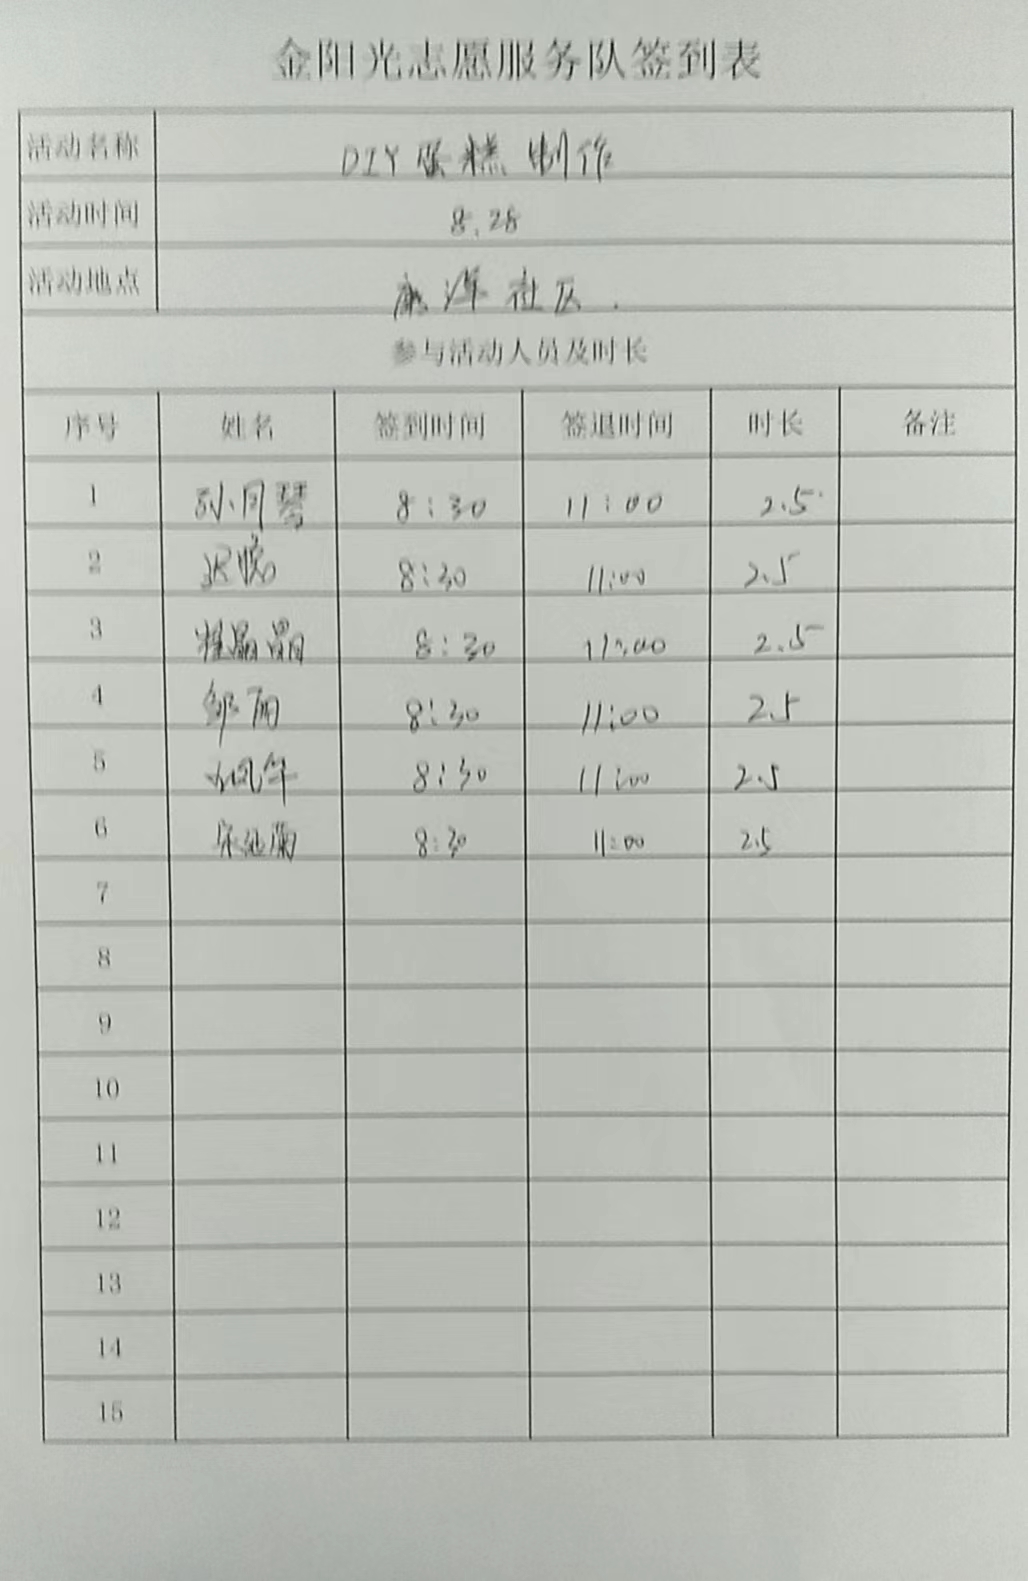 金阳光志愿服务队签到表
活动名称 DIY蛋糕制作
活动时间 8.28
活动地点 社区.
参与活动人员及时长
序号 姓名 签到时间 签退时间 时长 备注
1 孙月琴 8:30 11:00 2.5
2 8:30 11:00 2.5
3 程晶晶 8:30 11:00 2.5
4 邹丽 8:30 11:00 2.5
5 8:30 11:00 2.5
6 8:30 11:00 2.5
7
8
9
10
11
12
13
14
15